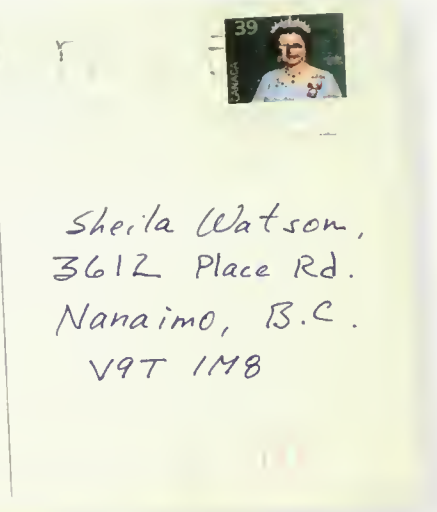 39
CANADA
Sheila Watson,
3612 Place Rd.
Nanaimo, B.C.
V9T 1M8